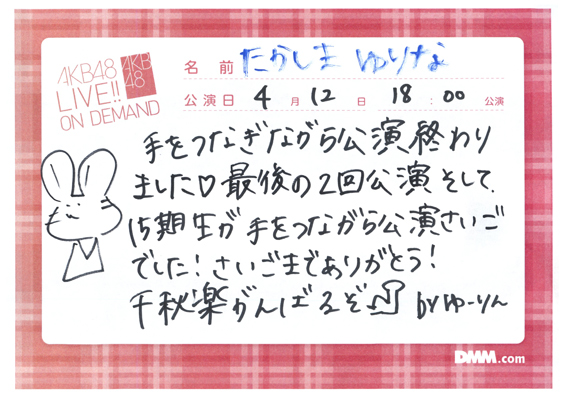 AKB48
LIVE!!
ON DEMAND
AKB
48
名 前 たかしま ゆりな
公演日 4 月 12 日 18 : 00 公演
手をつなぎながら公演終わり
ました♡最後の2回公演そして、
15期生が手をつながら公演さいご
でした!さいごまでありがとう!
千秋楽がんばるぞ♪ byゆーりん
DMM.com